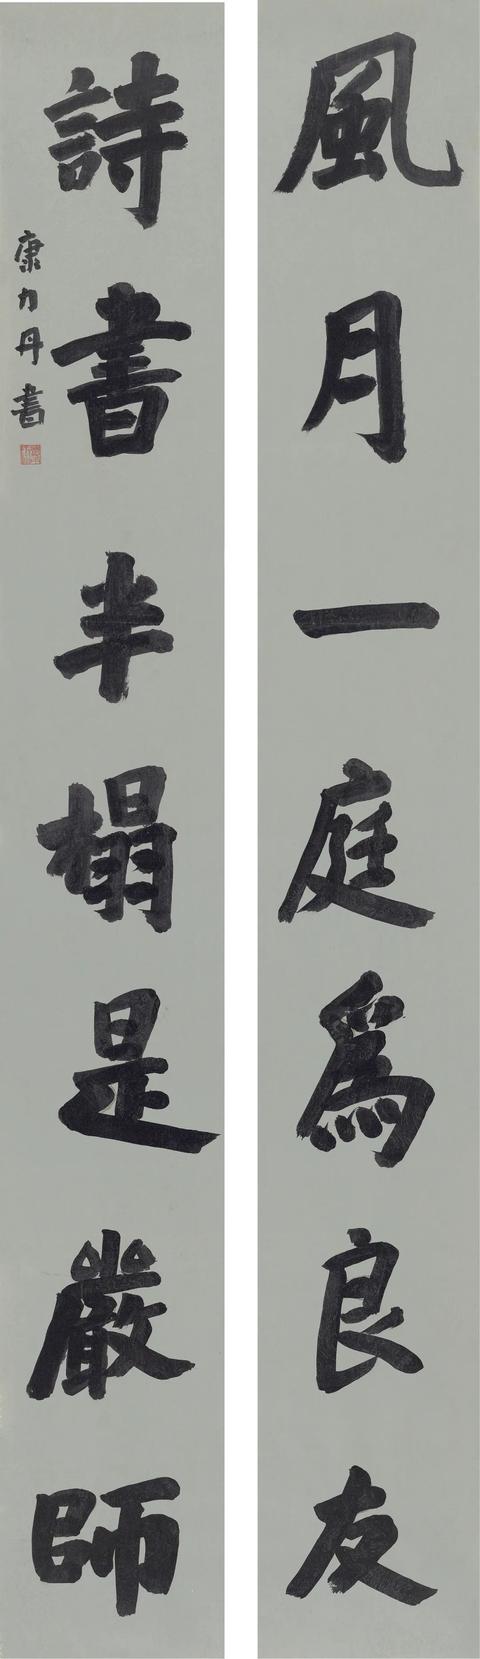 風月一庭爲良友
詩書半榻是嚴師
康力丹書